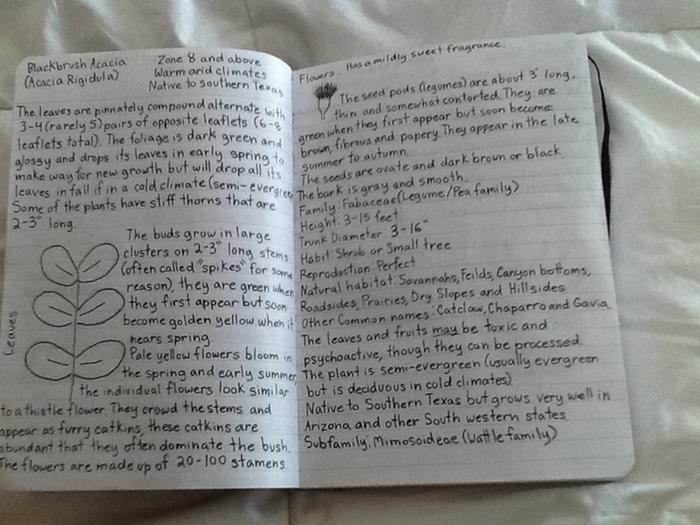 Blackbrush Acacia
(Acacia Rigidula)
Zone 8 and above
Warm arid climates
Native to southern Texas
The leaves are pinnately compound alternate with
3-4 (rarely 5) pairs of opposite leaflets (6-8
leaflets total). The foliage is dark green and
glossy and drops its leaves in early spring to
make way for new growth but will drop all its
leaves in fall if in a cold climate (semi-evergreen
Some of the plants have stiff thorns that are
2-3" long.
The buds grow in large
clusters on 2-3" long stems
(often called "spikes" for some
reason), they are green when
they first appear but soon
become golden yellow when it
nears spring.
Pale yellow flowers bloom in
the spring and early summer,
the individual flowers look similar
to a thistle flower. They crowd the stems and
appear as furry catkins, these catkins are
abundant that they often dominate the bush.
The flowers are made up of 20-100 stamens
Leaves
Flowers Has a mildly sweet fragrance.
The seed pods (legumes) are about 3" long,
thin and somewhat contorted. They are
green when they first appear but soon become
brown, fibrous and papery. They appear in the late
summer to autumn.
The seeds are ovate and dark brown or black
The bark is gray and smooth.
Family: Fabaceae (Legume/Pea family)
Height: 3-15 feet
Trunk Diameter: 3-16"
Habit: Shrub or Small tree
Reproduction: Perfect
Natural habitat: Savannahs, Feilds, Canyon bottoms,
Roadsides, Prairies, Dry Slopes and Hillsides
Other Common names: Catclaw, Chaparro and Gavia
The leaves and fruits may be toxic and
psychoactive, though they can be processed.
The plant is semi-evergreen (usually evergreen
but is deciduous in cold climates)
Native to Southern Texas but grows very well in
Arizona and other South western states.
Subfamily: Mimosoideae (Wattle family)